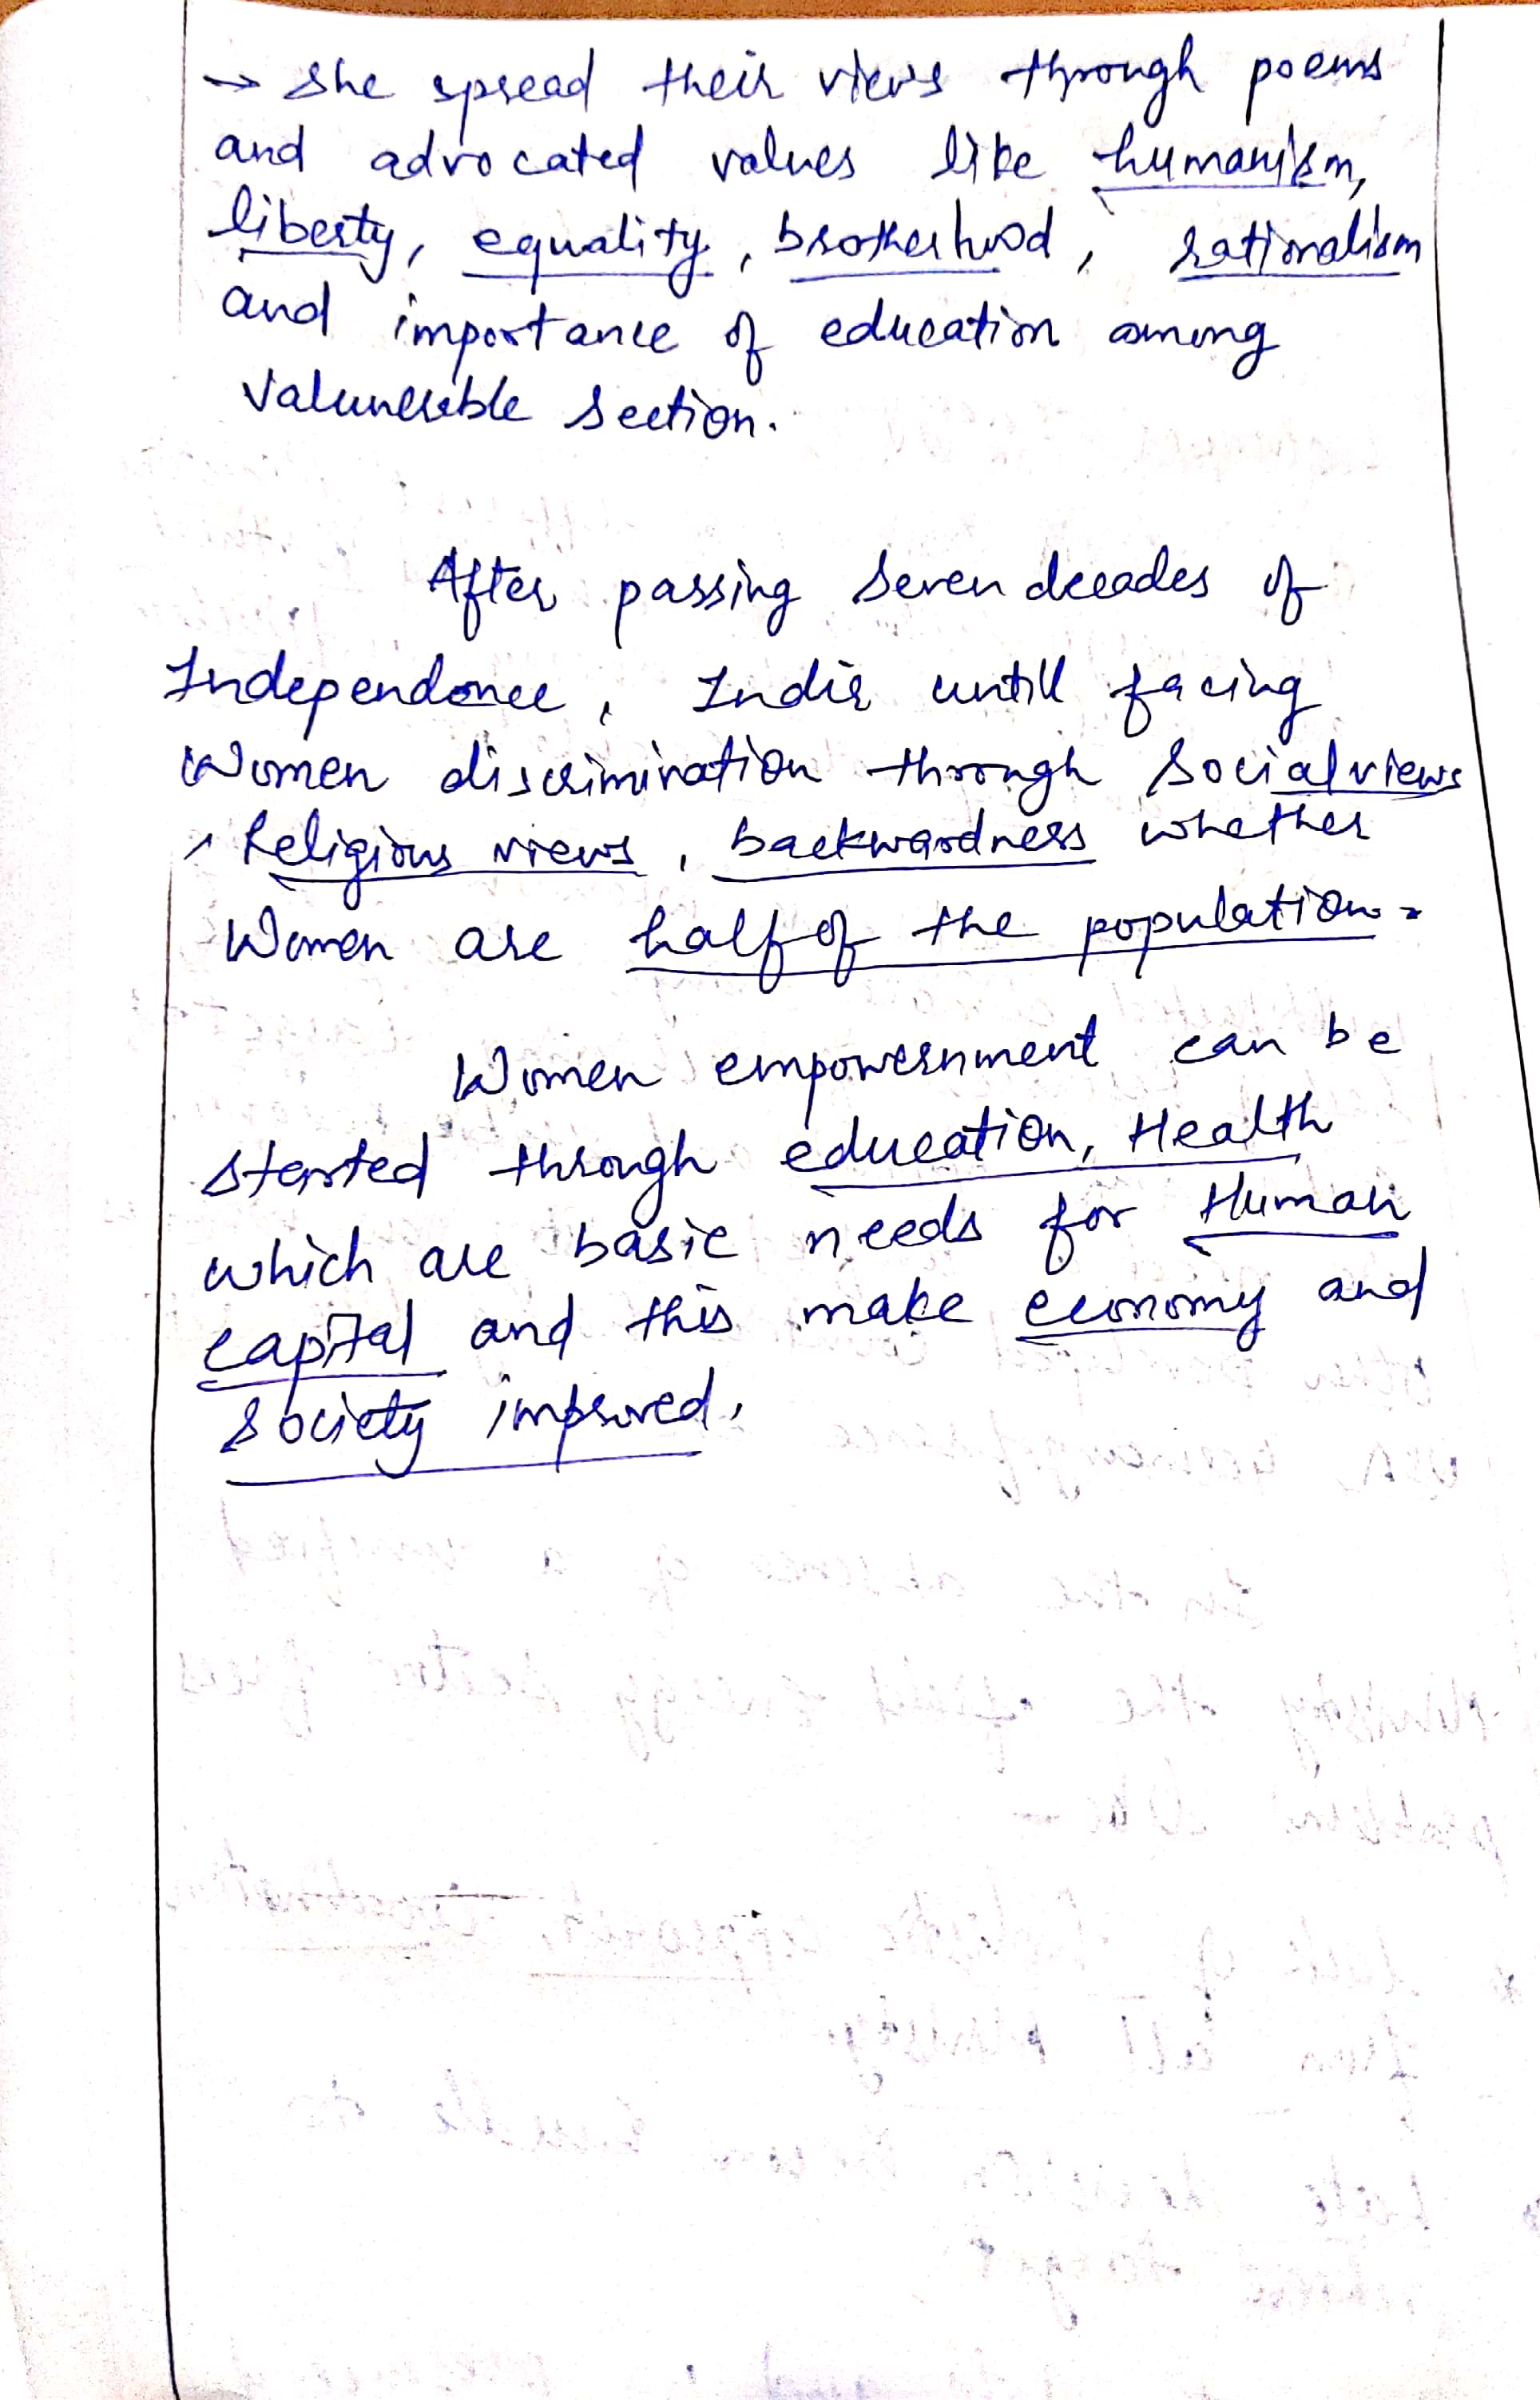 → She spread their views through poems
and advocated values like humanism,
liberty, equality, brotherhood, rationalism
and importance of education among
Valunerable section.
After passing seven decades of
Independence, India untill facing
Women discrimination through social views
, Religious views, backwardness whether
Women are half of the population.
Women empowernment can be
started through education, Health
which are basic needs for Human
capital and this make economy and
society improved.